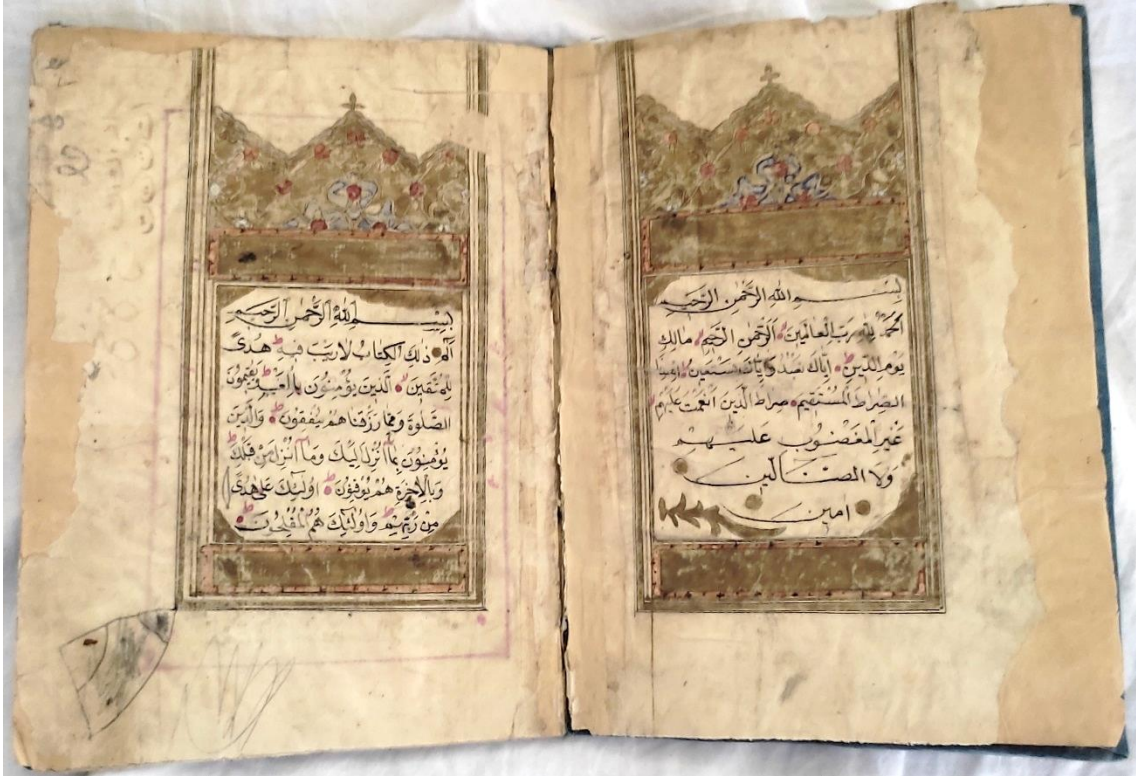 بِسْمِ اللهِ الرَّحْمٰنِ الرَّحِيمِ
اَلْحَمْدُ لِلّٰهِ رَبِّ الْعَالَمِينَ الرَّحْمٰنِ الرَّحِيمِ مَالِكِ
يَوْمِ الدِّينِ اِيَّاكَ نَعْبُدُ وَاِيَّاكَ نَسْتَعِينُ اِهْدِنَا
الصِّرَاطَ الْمُسْتَقِيمَ صِرَاطَ الَّذِينَ اَنْعَمْتَ عَلَيْهِمْ
غَيْرِ الْمَغْضُوبِ عَلَيْهِمْ
وَلَا الضَّالِّينَ
امين
بِسْمِ اللهِ الرَّحْمٰنِ الرَّحِيمِ
الم ذٰلِكَ الْكِتَابُ لَا رَيْبَ فِيهِ هُدًى
لِلْمُتَّقِينَ الَّذِينَ يُؤْمِنُونَ بِالْغَيْبِ وَيُقِيمُونَ
الصَّلٰوةَ وَمِمَّا رَزَقْنَاهُمْ يُنْفِقُونَ وَالَّذِينَ
يُؤْمِنُونَ بِمَا اُنْزِلَ اِلَيْكَ وَمَا اُنْزِلَ مِنْ قَبْلِكَ
وَبِالْاٰخِرَةِ هُمْ يُوقِنُونَ اُولٰئِكَ عَلٰى هُدًى
مِنْ رَبِّهِمْ وَاُولٰئِكَ هُمُ الْمُفْلِحُونَ